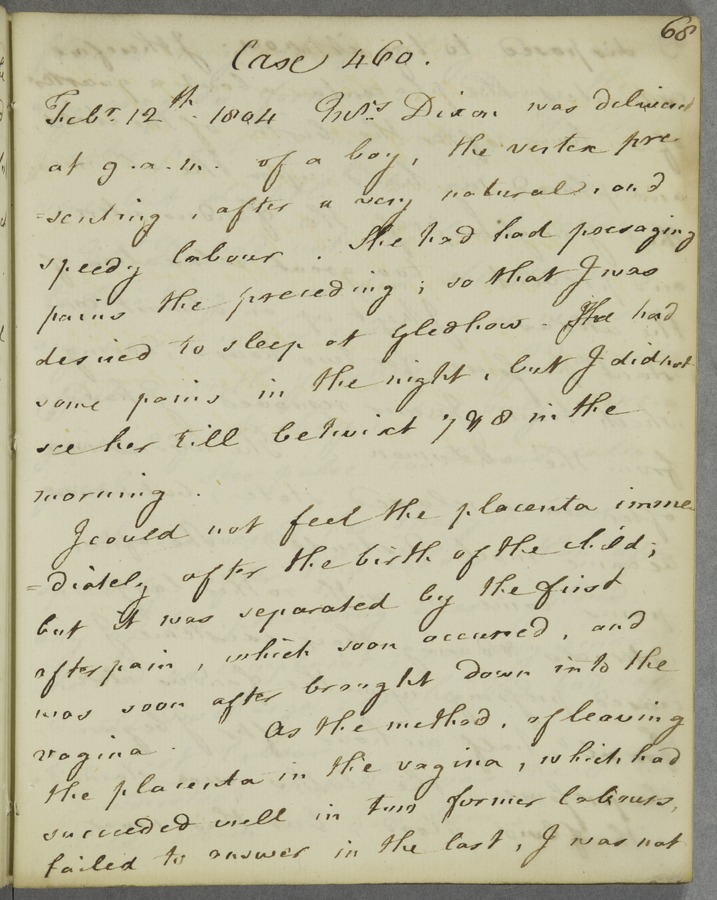 68
Case 460.
Febr. 12th. 1804 Mrs Dixon was delivered
at 9. a.m. of a boy, the vertex pre
=senting, after a very natural, and
speedy labour. She had had presaging
pains the preceding; so that I was
desired to sleep at Gledhow. She had
some pains in the night, but I did not
see her till betwixt 7 & 8 in the
morning.
I could not feel the placenta imme
=diately after the birth of the child;
but it was separated by the first
afterpain, which soon occurred, and
was soon after brought down into the
vagina. As the method, of leaving
the placenta in the vagina, which had
succeeded well in two former labours,
failed to answer in the last, I was not